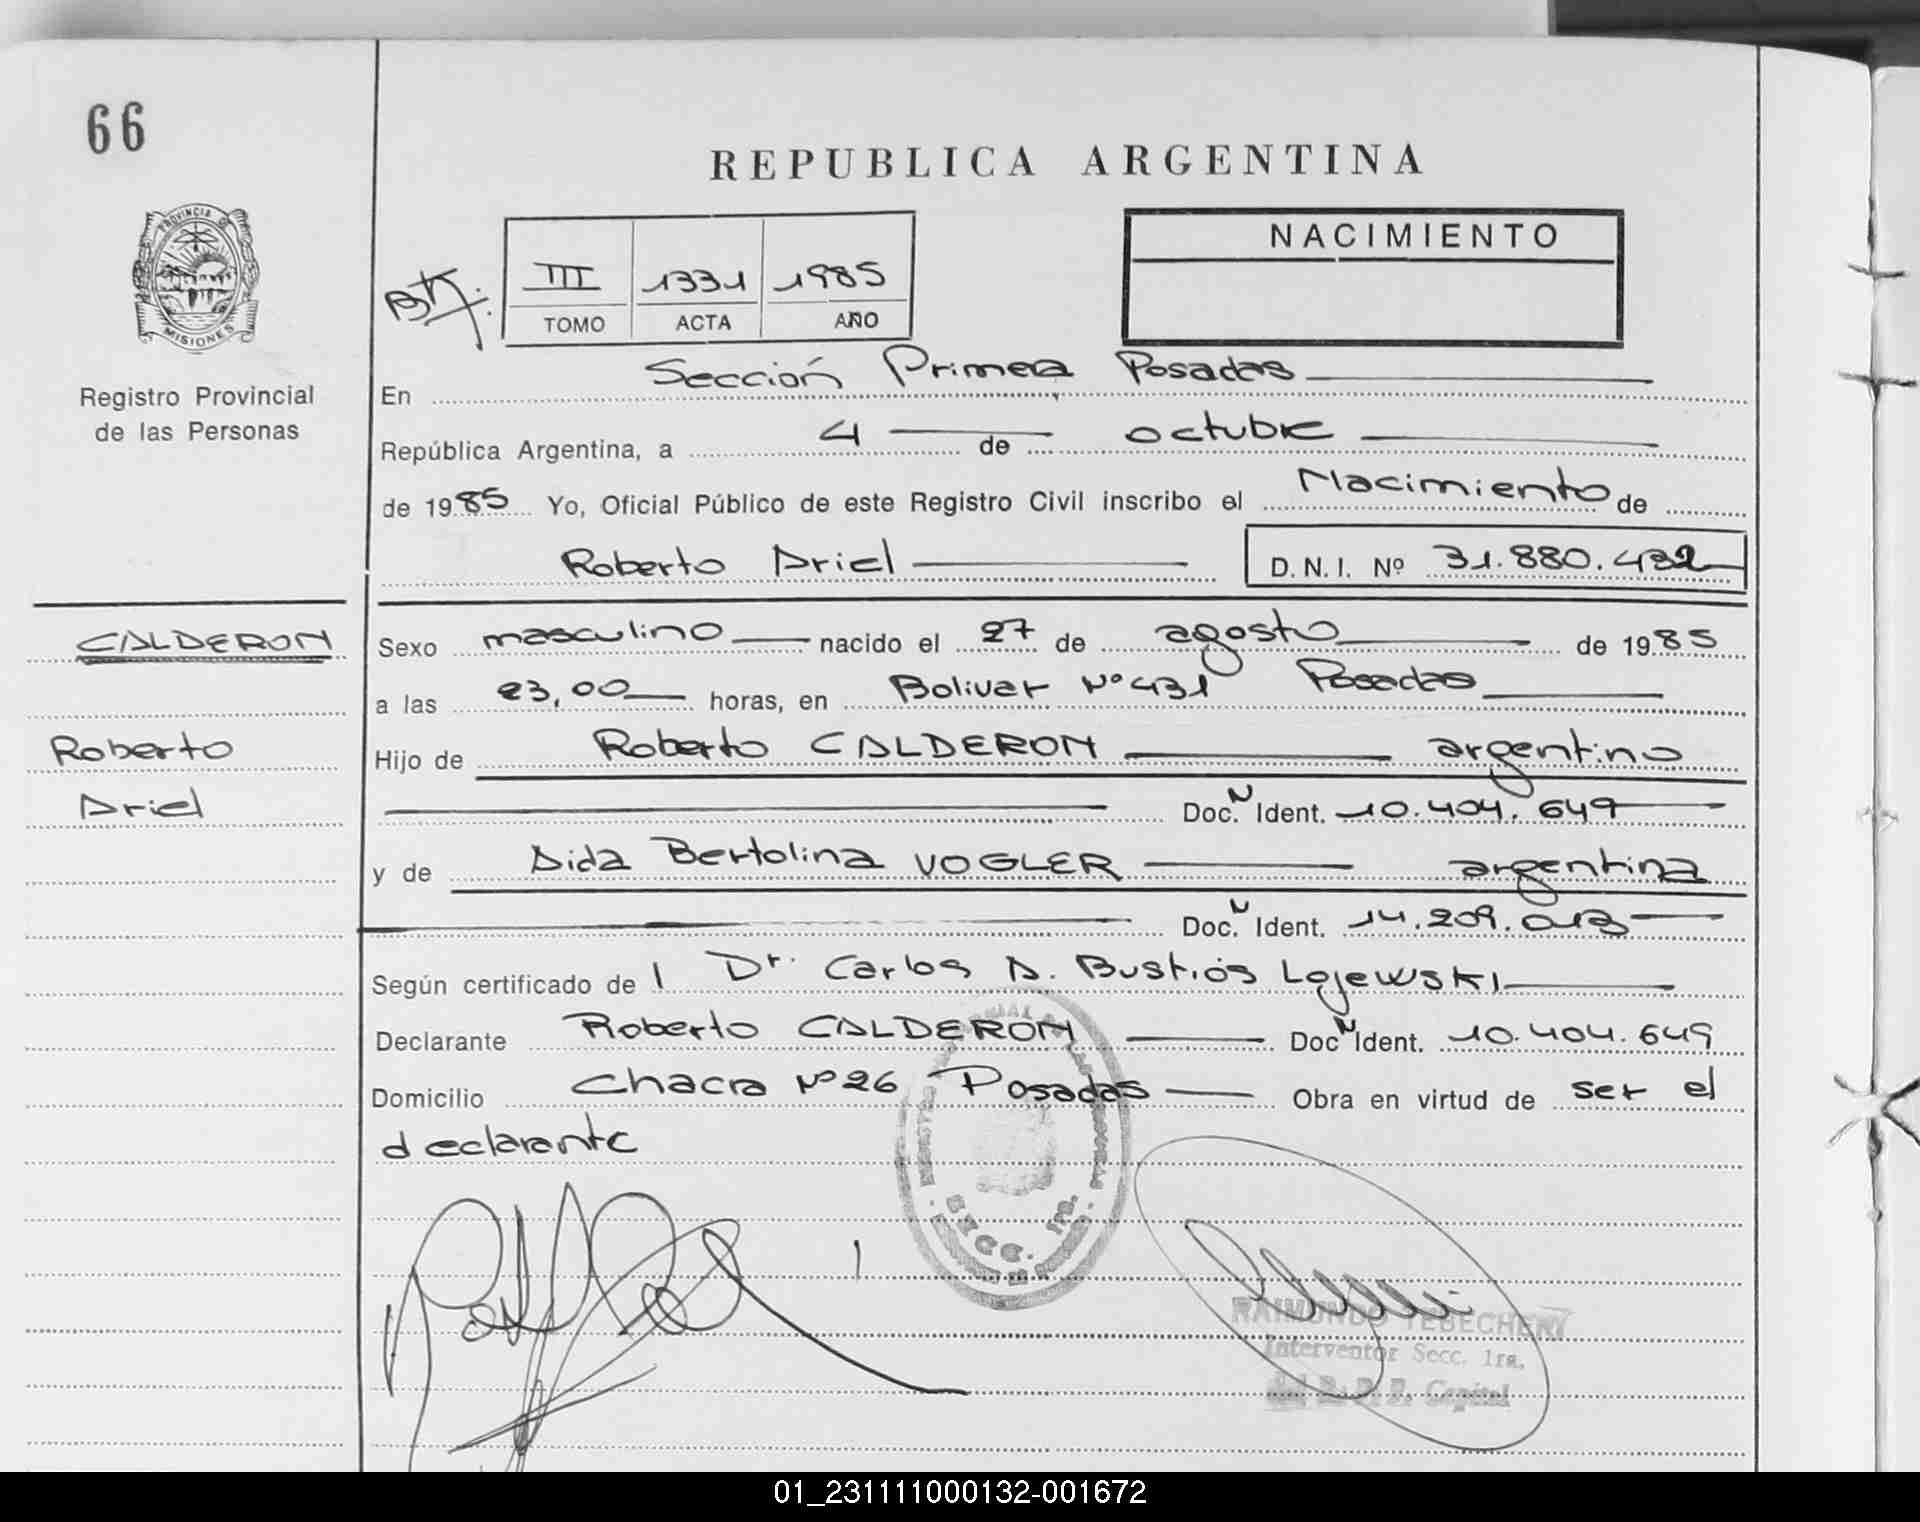 66
REPUBLICA ARGENTINA
PROVINCIA DE
MISIONES
Registro Provincial
de las Personas
III 1331 1985
TOMO ACTA AÑO
NACIMIENTO
En Sección Primera Posadas
República Argentina, a 4 de octubre
de 1985 Yo, Oficial Público de este Registro Civil inscribo el Nacimiento de
Roberto Ariel D.N.I. Nº 31.880.432
CALDERON
Roberto
Ariel
Sexo masculino nacido el 27 de agosto de 1985
a las 23,00 horas, en Bolivar Nº 431 Posadas
Hijo de Roberto CALDERON argentino
Doc. N Ident. 10.404.649
y de Aida Bertolina VOGLER argentina
Doc. N Ident. 14.209.013
Según certificado de Dr. Carlos A. Bustiós Lojewski
Declarante Roberto CALDERON Doc N Ident. 10.404.649
Domicilio Chacra Nº 26 Posadas Obra en virtud de ser el
declarante
SECC. 1ra.
RAIMUNDO TEBECHERY
Interventor Secc. 1ra.
del R. P. P. Capital
01_231111000132-001672